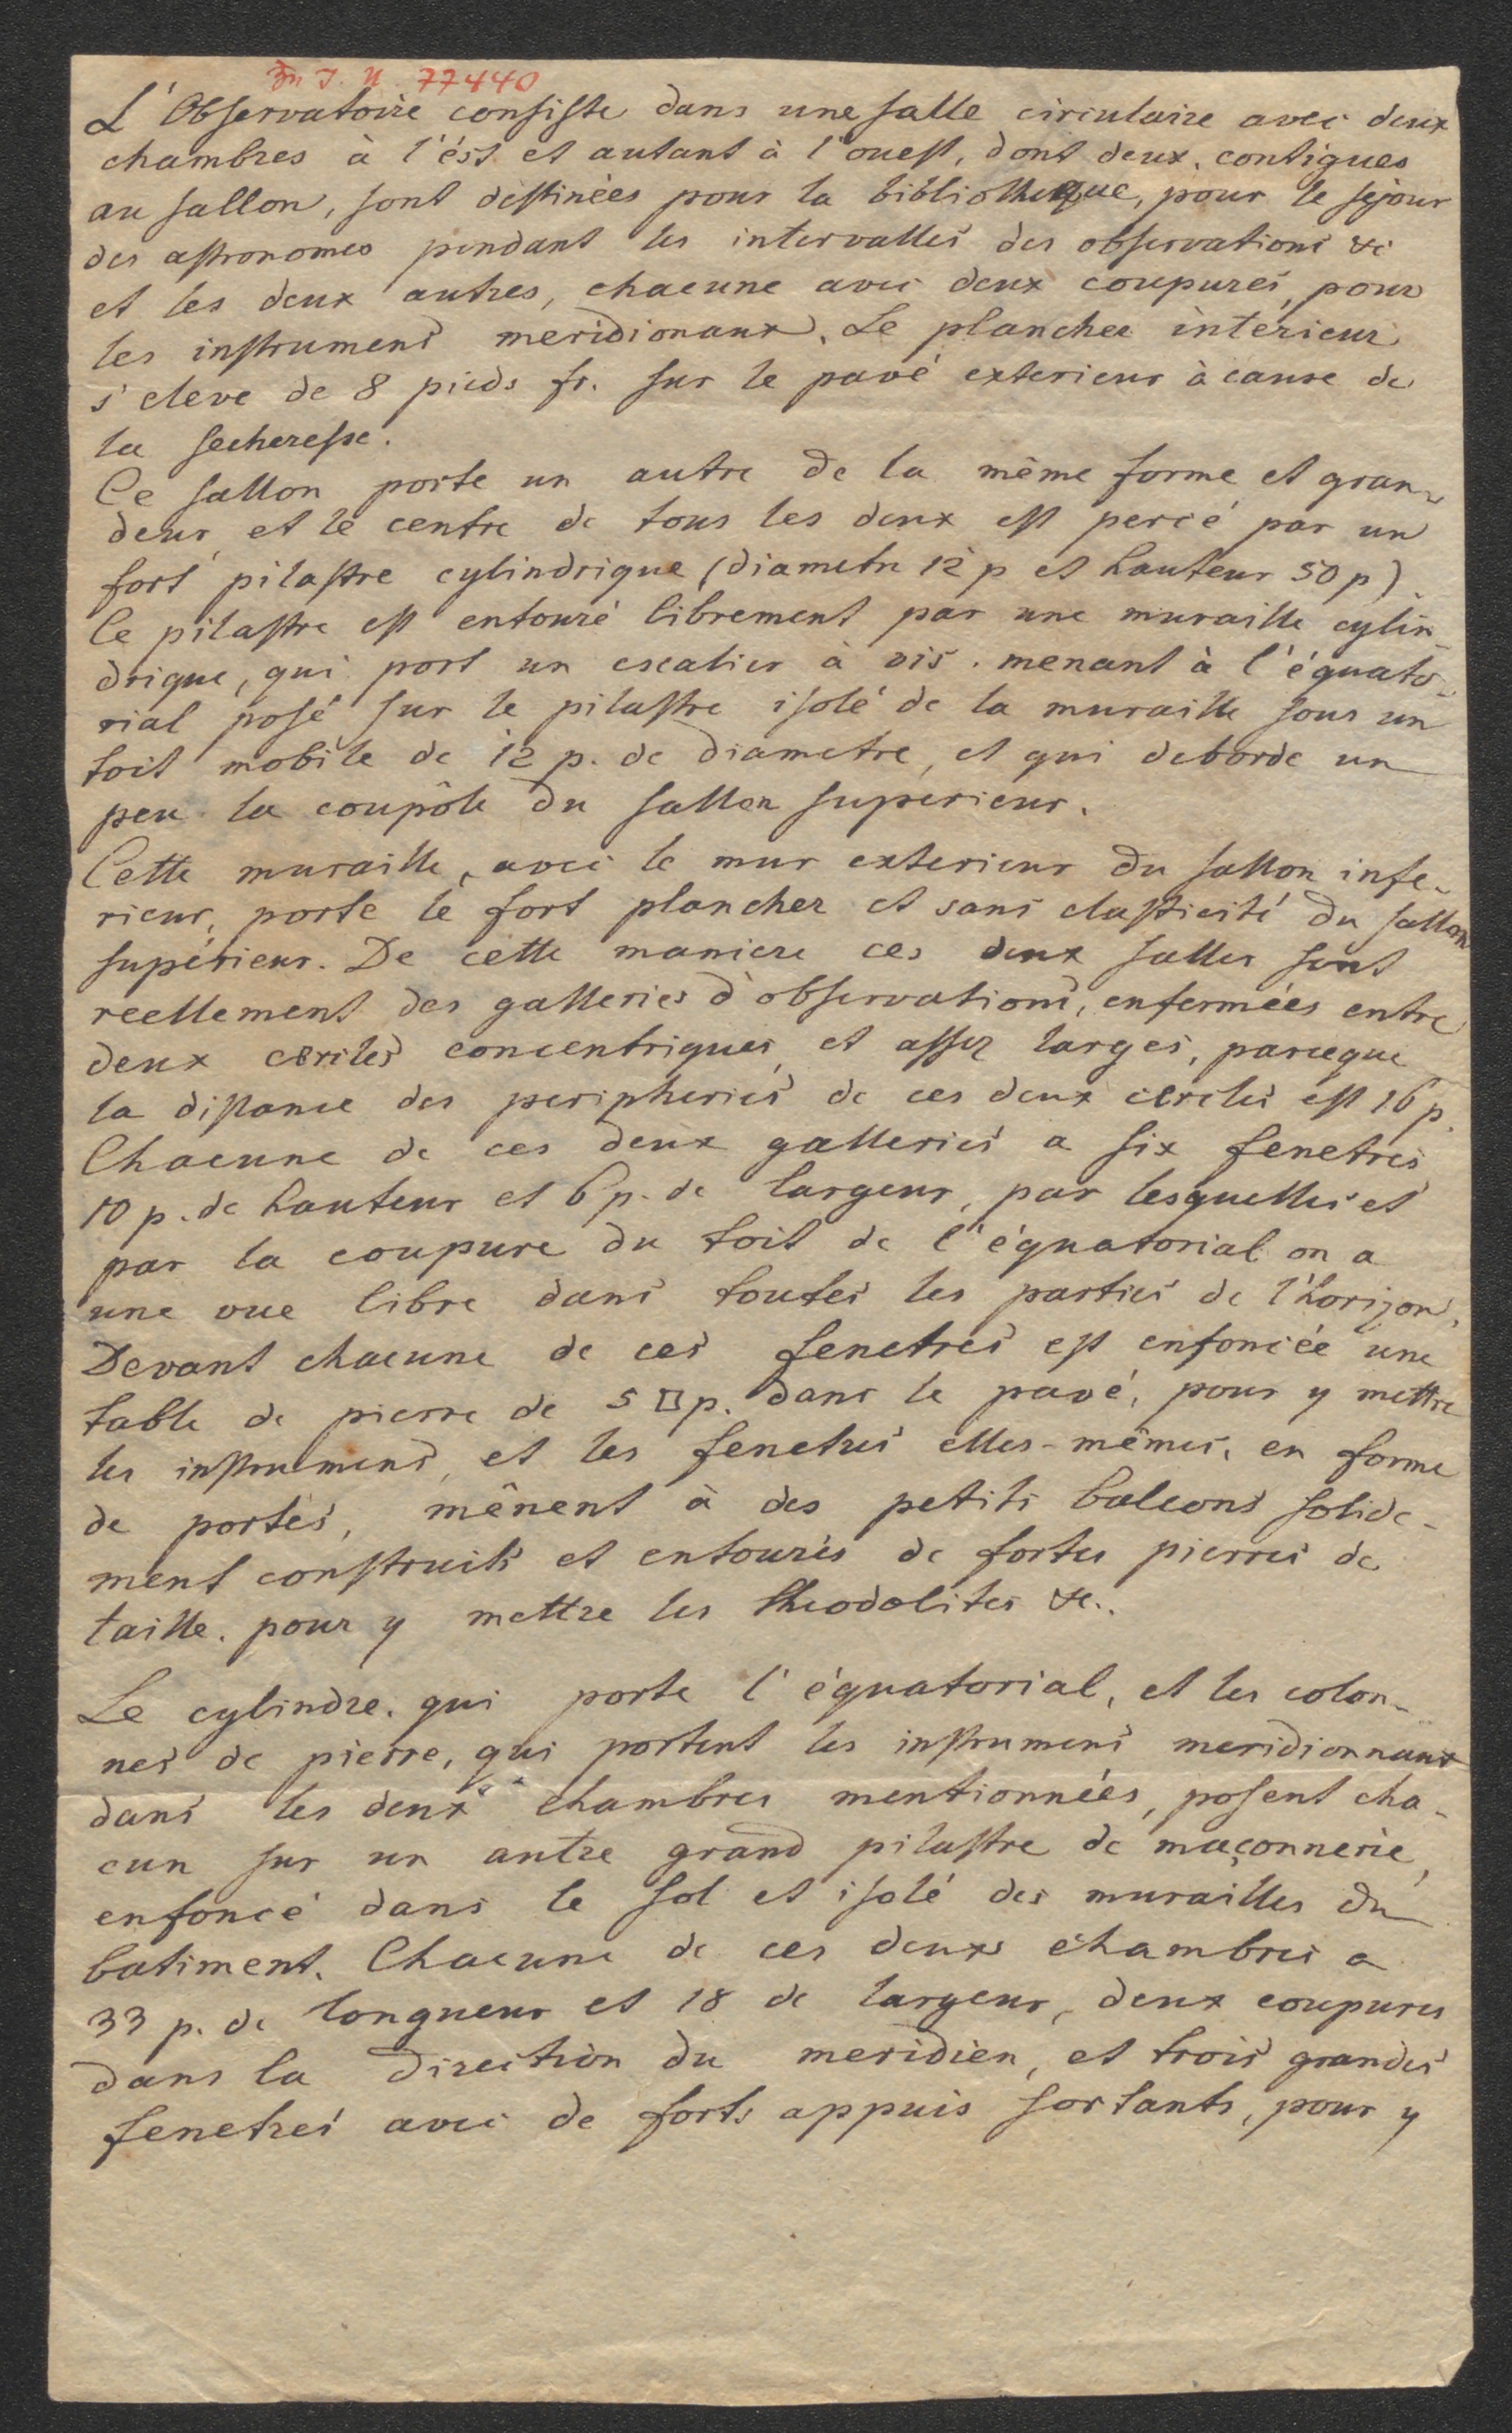 Zu I. N. 77440
L'Observatoire consiste dans une salle circulaire avec deux
chambres à l'ést et autant à l'ouest, dont deux, contigues
au sallon, sont destinées pour la bibliotheque, pour le séjour
des astronomes pendant les intervalles des observations &c
et les deux autres, chacune avec deux coupures, pour
les instrumens meridionaux. Le plancher interieur
s'eleve de 8 pieds fr. sur le pavé exterieur à cause de
la secheresse.
Ce sallon porte un autre de la même forme et gran-
deur et le centre de tous les deux est percé par un
fort pilastre cylindrique (diametre 12 p et hauteur 50 p)
Ce pilastre est entouré librement par une muraille cylin-
drique, qui port un escalier à vis. menant à l'équato-
rial posé sur le pilastre isolé de la muraille sous un
toit mobile de 12 p. de diametre, et qui deborde un
peu la coupôle du sallon superieur.
Cette muraille, avec le mur exterieur du sallon infe-
rieur, porte le fort plancher et sans elasticité du sallon
supérieur. De cette maniere ces deux salles sont
reellement des galleries d'observations, enfermées entre
deux cercles concentriques, et assez larges, parceque
la distance des peripheries de ces deux cercles est 16 p.
Chacune de ces deux galleries a six fenetres
10 p. de hauteur et 6 p. de largeur, par lesquelles et
par la coupure du toit de l'équatorial on a
une vue libre dans toutes les parties de l'horizon.
Devant chacune de ces fenetres est enfoncée une
table de pierre de 5 □ p. dans le pavé, pour y mettre
les instrumens, et les fenetres elles-mêmes, en forme
de portes, mênent à des petits balcons solide-
ment construits et entourés de fortes pierres de
taille. pour y mettre les theodolites &c.
Le cylindre. qui porte l'équatorial, et les colon-
nes de pierre, qui portent les instrumens meridionnaux
dans les deux chambres mentionnées, posent cha-
cun sur un autre grand pilastre de maçonnerie,
enfoncé dans le sol et isolé des murailles du
batiment. Chacune de ces deux chambres a
33 p. de longueur et 18 de largeur, deux coupures
dans la direction du meridien, et trois grandes
fenetres avec de forts appuis sortants, pour y